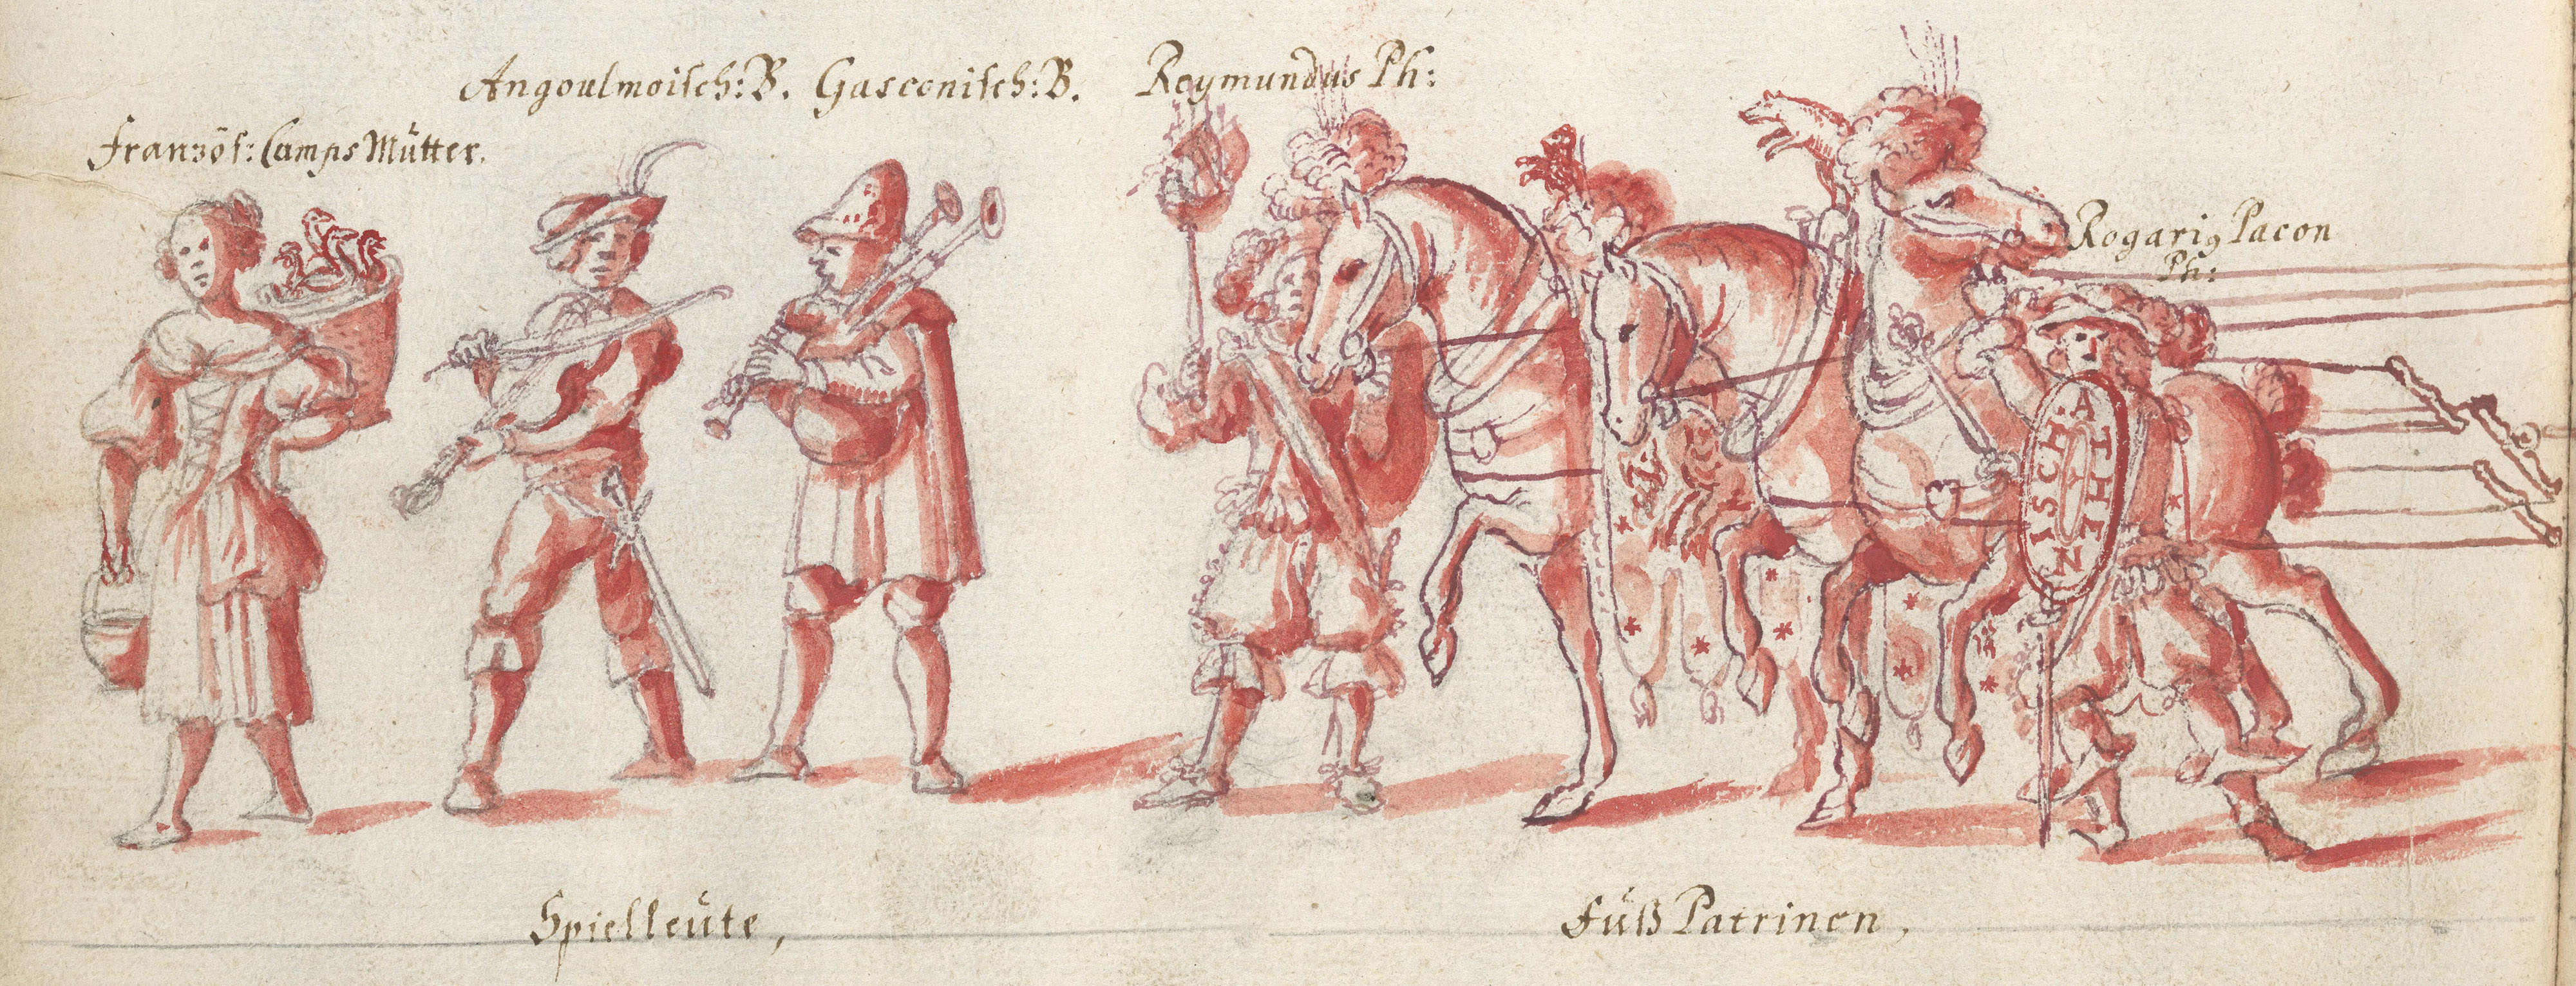 Angoulmoisch: B. Gasconisch: B. Reymundus Ph:
Französ: Camps Mütter.
Rogariꝰ Pacon
Ph:
ATHENISCH.
Spielleüte,
Füß Patrinen,